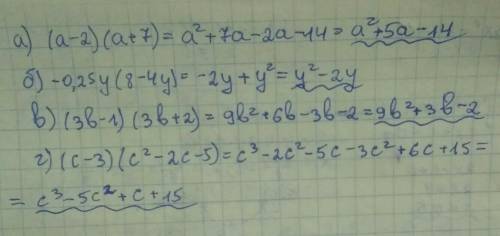 а) (a-2)(a+7) = a²+7a-2a-14 = a²+5a-14
б) -0,25y(8-4y) = -2y+y² = y²-2y
в) (3b-1)(3b+2) = 9b²+6b-3b-2 = 9b²+3b-2
г) (c-3)(c²-2c-5) = c³-2c²-5c-3c²+6c+15 =
= c³-5c²+c+15